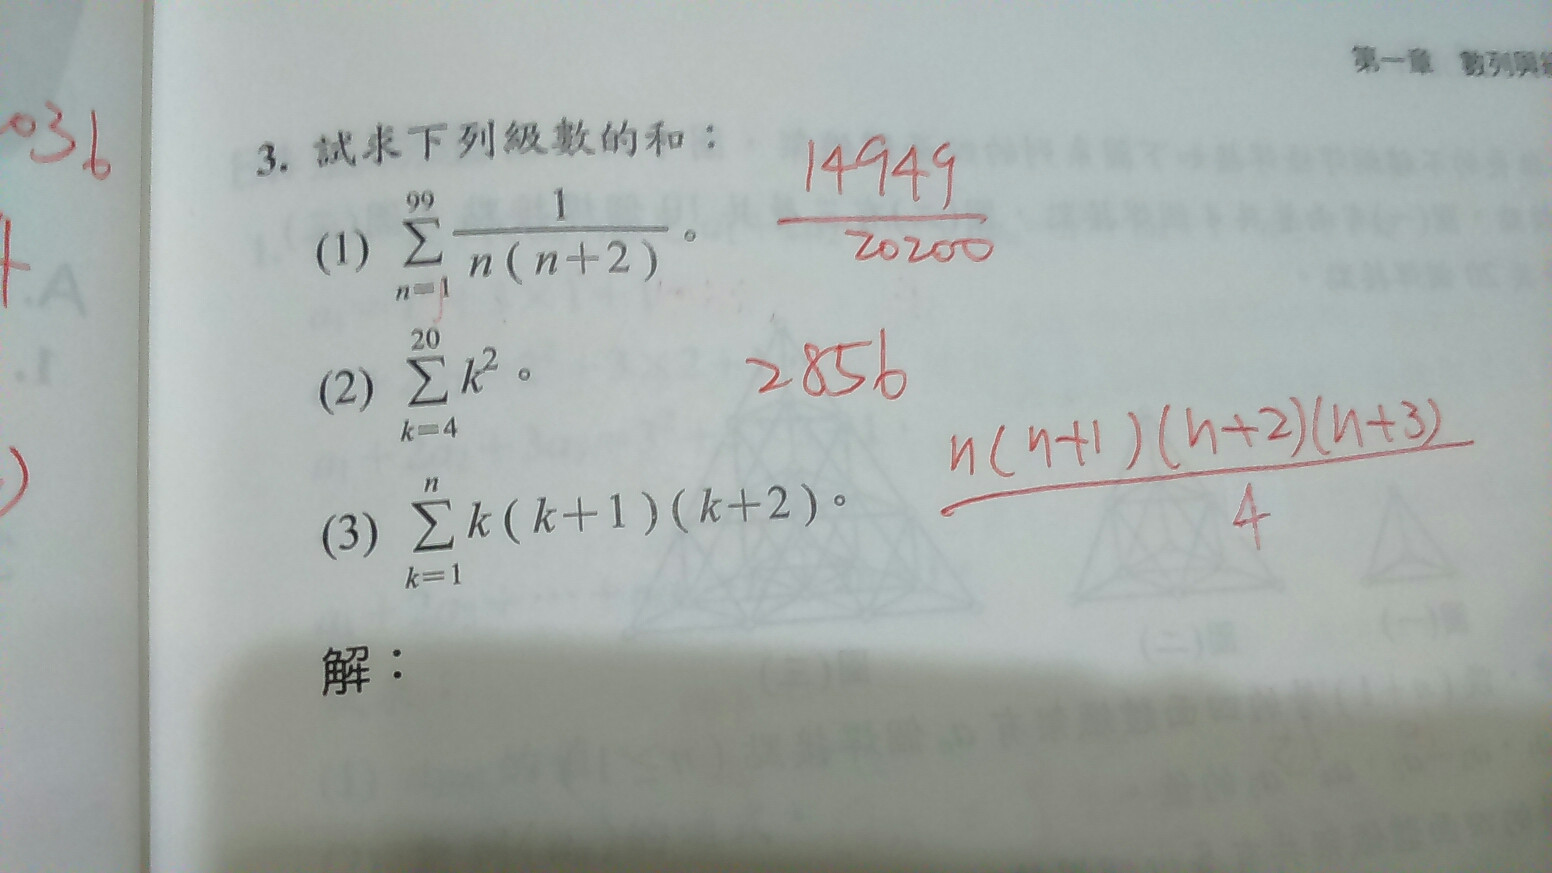 第一章 數列與
3. 試求下列級數的和：
(1) \sum_{n=1}^{99} \frac{1}{n(n+2)}。 \frac{14949}{20200}
(2) \sum_{k=4}^{20} k^2。 2856
(3) \sum_{k=1}^{n} k(k+1)(k+2)。 \frac{n(n+1)(n+2)(n+3)}{4}
解：
036
A.
1.